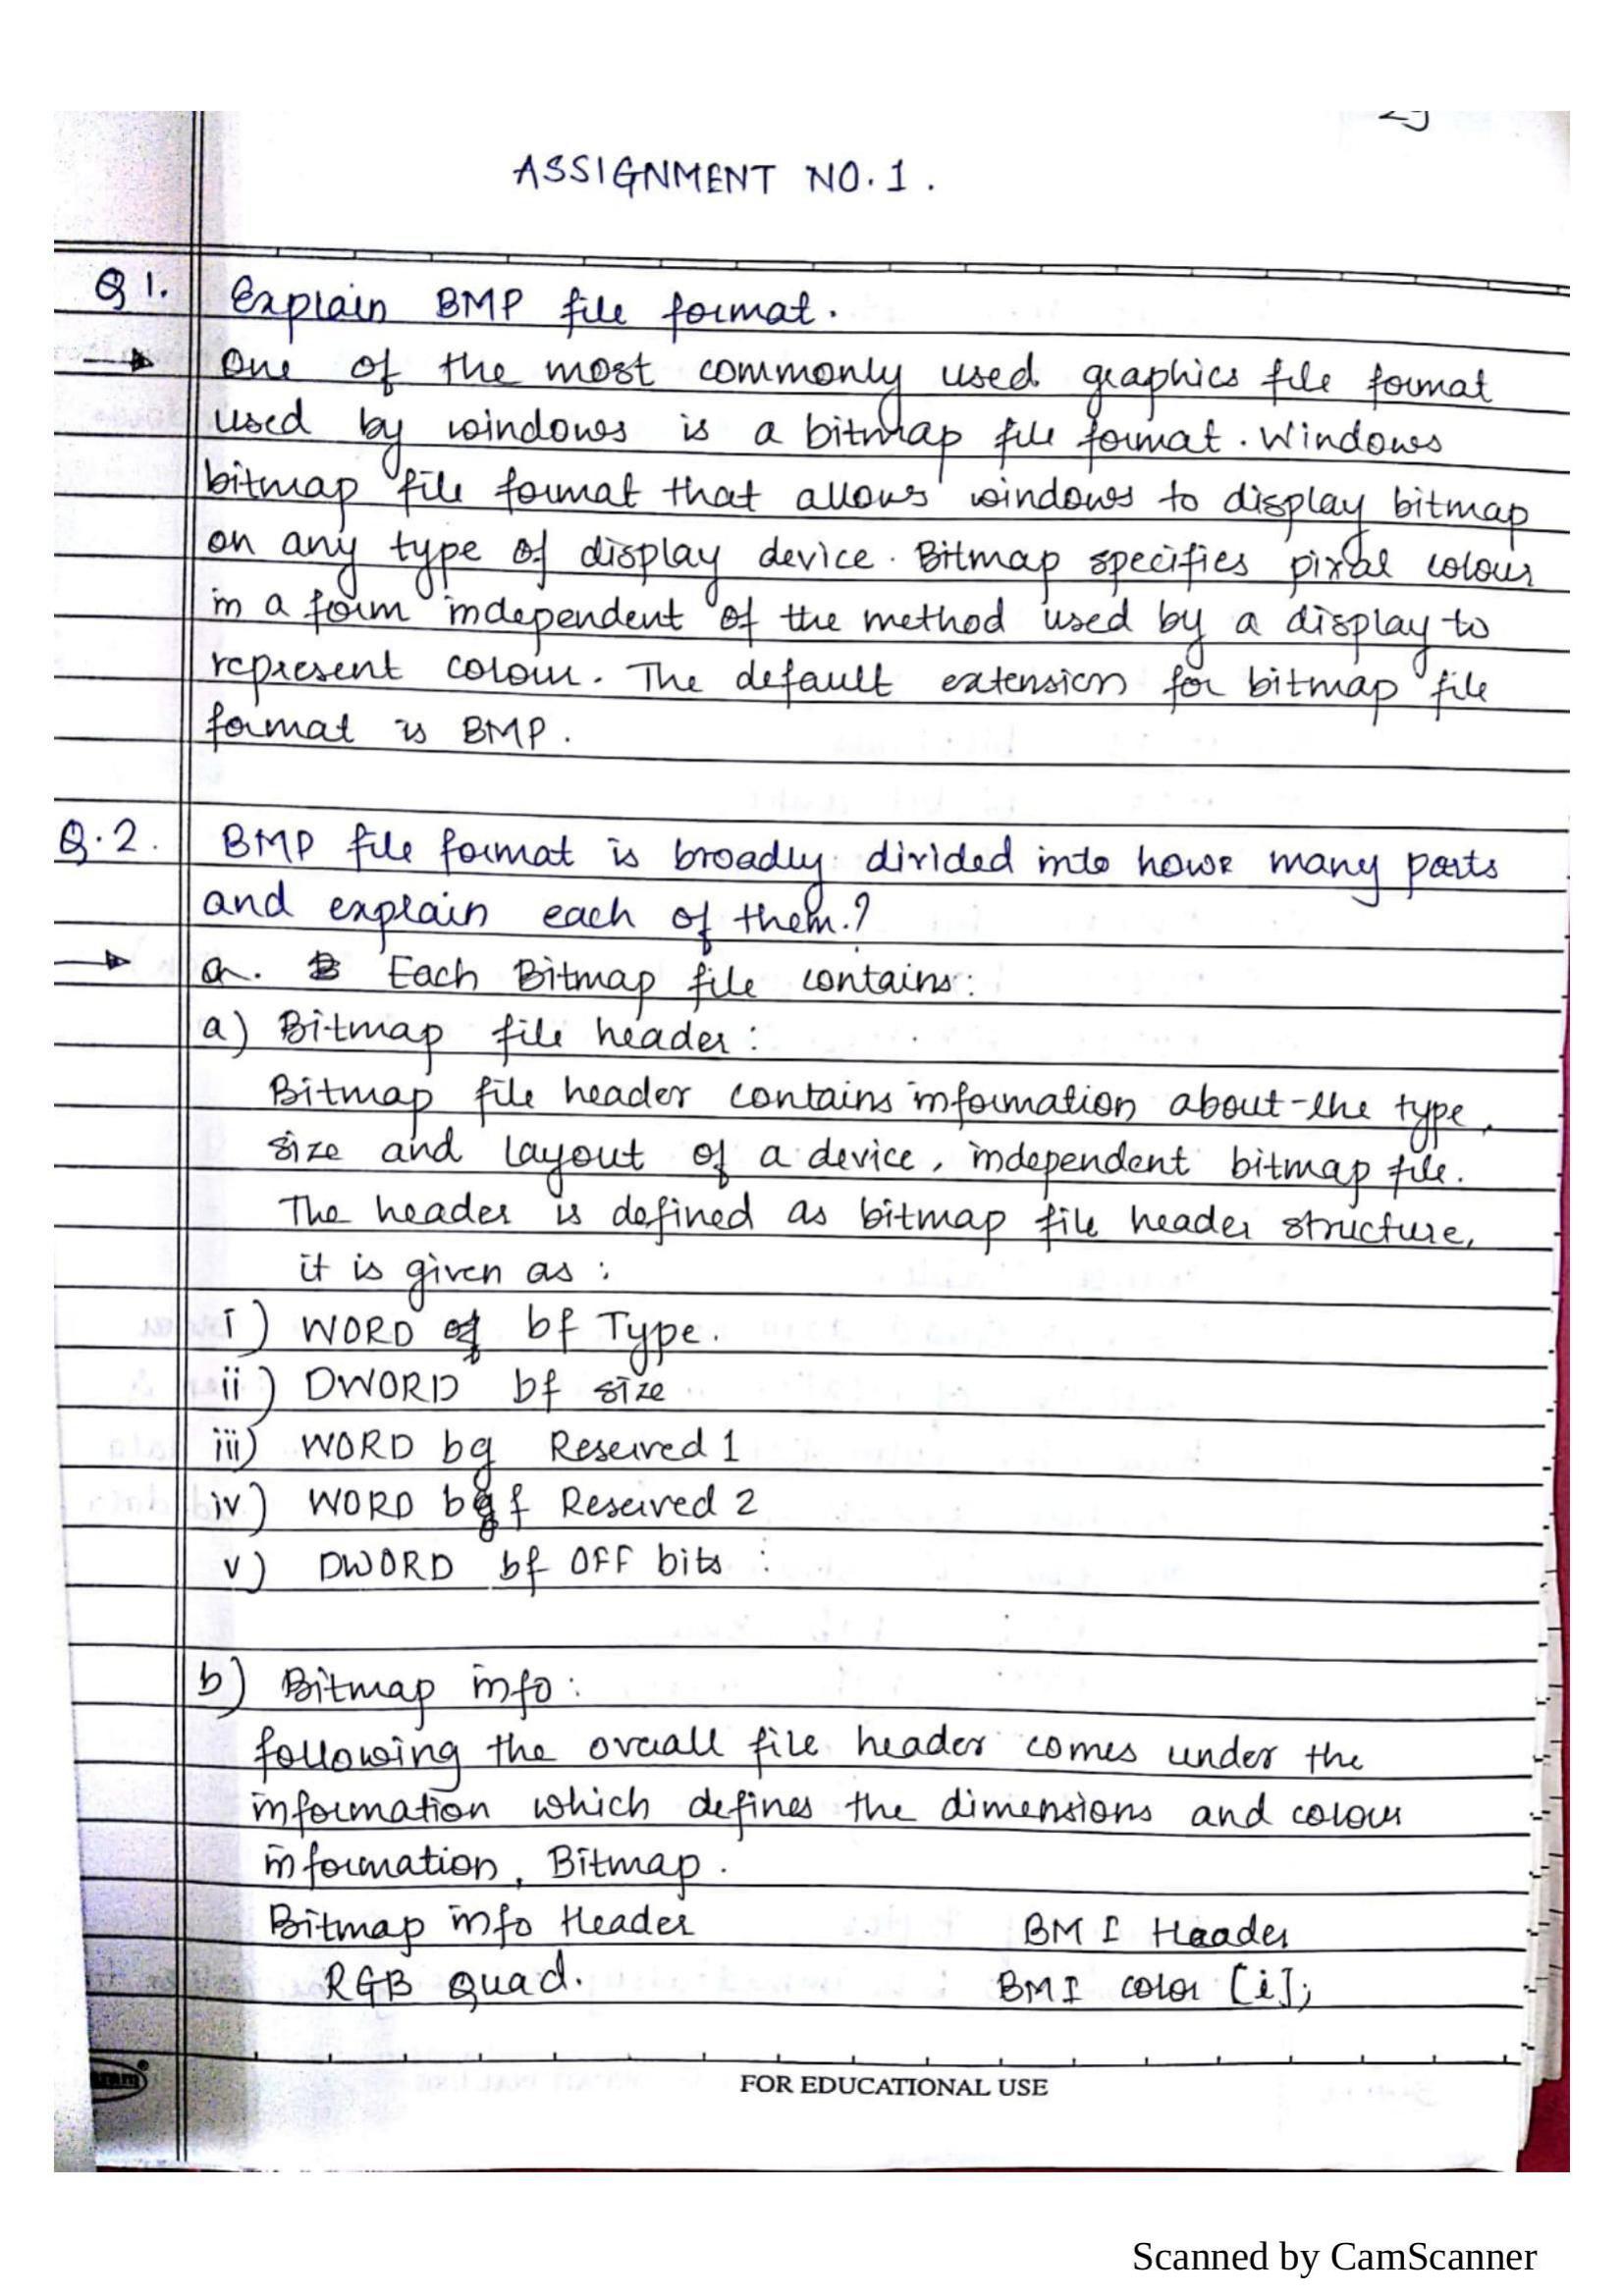 ASSIGNMENT NO. 1.
Q 1. Explain BMP file format.
One of the most commonly used graphics file format
used by windows is a bitmap file format. Windows
bitmap file format that allows windows to display bitmap
on any type of display device. Bitmap specifies pixal colour
in a form independent of the method used by a display to
represent colour. The default extension for bitmap file
format is BMP.
Q.2. BMP file format is broadly divided into how many parts
and explain each of them.?
a. Each Bitmap file contains:
a) Bitmap file header:
Bitmap file header contains information about the type,
size and layout of a device, independent bitmap file.
The header is defined as bitmap file header structure,
it is given as:
i) WORD bf Type.
ii) DWORD bf size
iii) WORD bg Reserved 1
iv) WORD bf Reserved 2
v) DWORD bf OFF bits :
b) Bitmap info:
following the overall file header comes under the
information which defines the dimensions and colour
information, Bitmap.
Bitmap info Header BM I Header
RGB quad. BMI color [i];
FOR EDUCATIONAL USE
Scanned by CamScanner